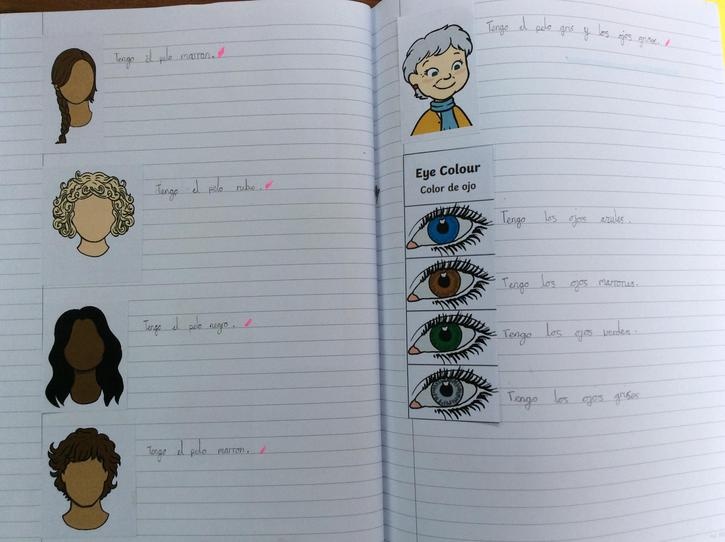 Tengo el pelo marron.
Tengo el pelo rubio.
Tengo el pelo negro.
Tengo el pelo marron.
Tengo el pelo gris y los ojos grises.
Eye Colour
Color de ojo
Tengo los ojos azules.
Tengo los ojos marrones.
Tengo los ojos verdes.
Tengo los ojos grises